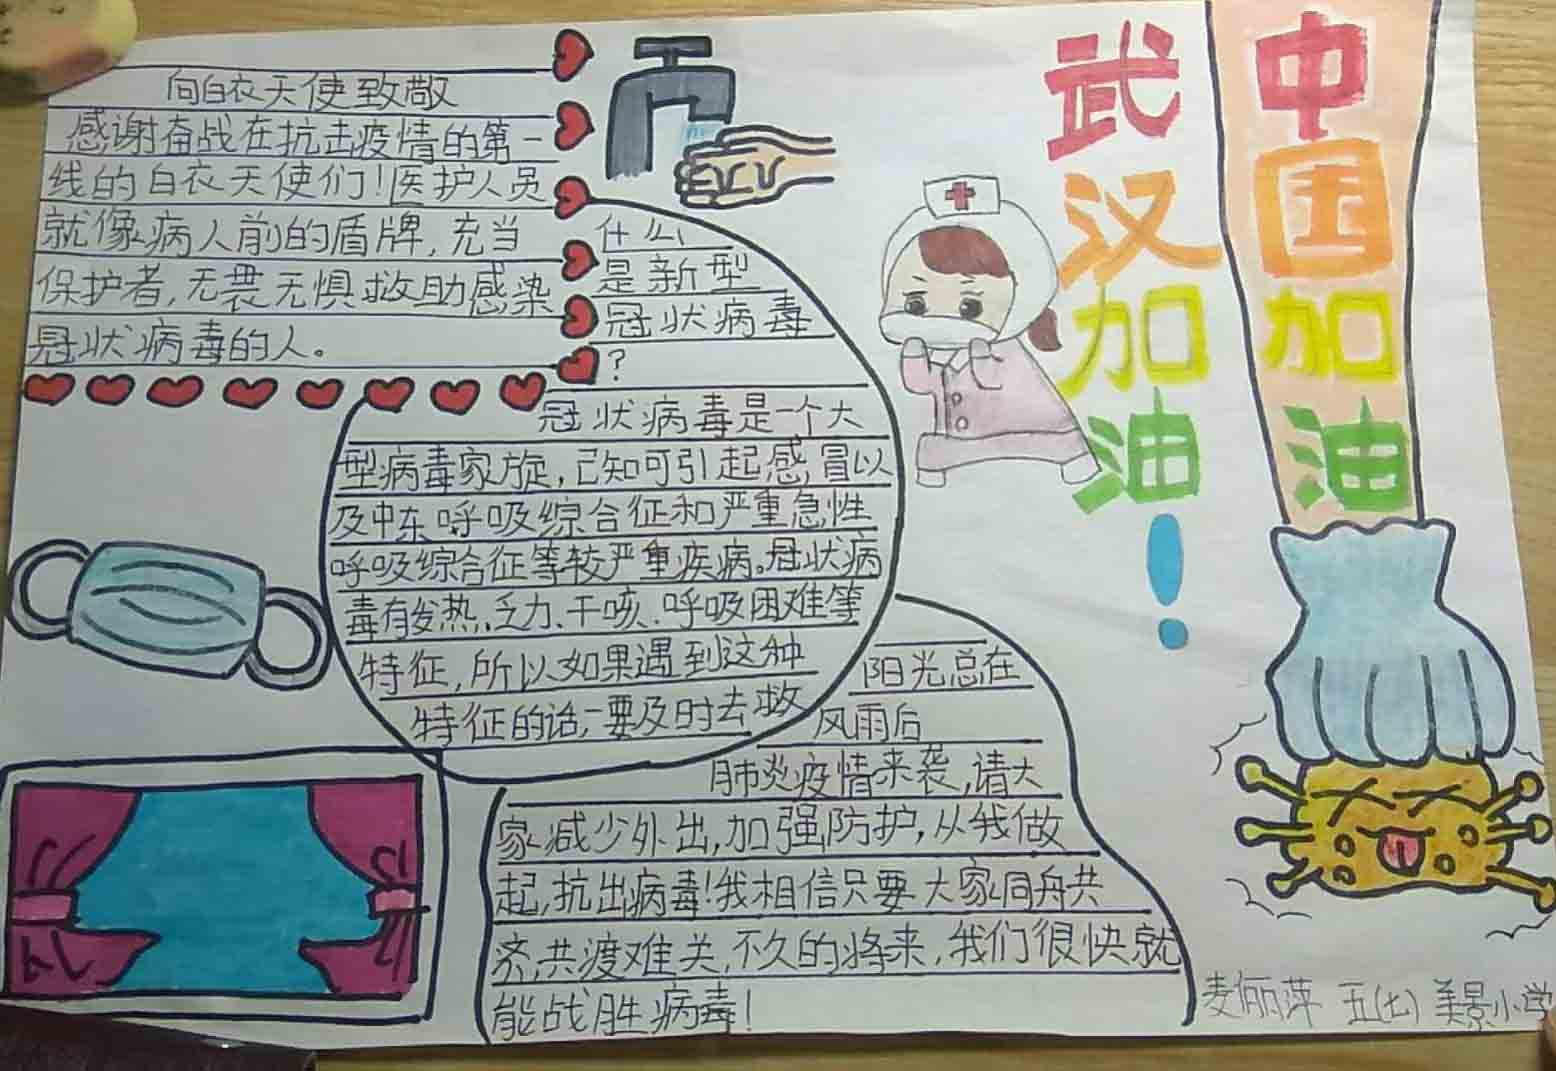 向白衣天使致敬
感谢奋战在抗击疫情的第一
线的白衣天使们！医护人员
就像病人前的盾牌，充当
保护者，无畏无惧救助感染
冠状病毒的人。
什么
是新型
冠状病毒
？
冠状病毒是一个大
型病毒家旋，己知可引起感冒以
及中东呼吸综合征和严重急性
呼吸综合征等较严重疾病。冠状病
毒有发热、乏力、干咳、呼吸困难等
特征，所以如果遇到这种
特征的话，要及时去救
阳光总在
风雨后
肺炎疫情来袭，请大
家减少外出，加强防护，从我做
起，抗出病毒！我相信只要大家同舟共
济，共渡难关，不久的将来，我们很快就
能战胜病毒！
武汉加油！
中国加油
麦俪萍 五(七) 美景小学